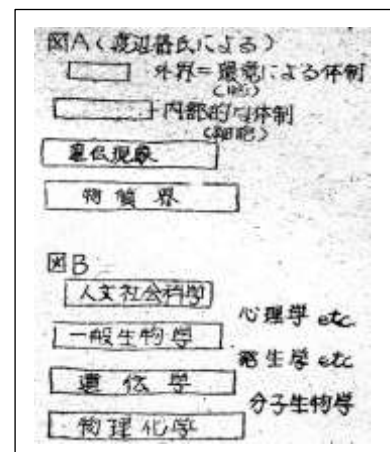 図A(渡辺格氏による)
外界=環境による体制
(脳)
内部的な体制
(細胞)
遺伝現象
物質界
図B
人文社会科学
心理学 etc
一般生物学
発生学 etc
遺伝学
分子生物学
物理化学